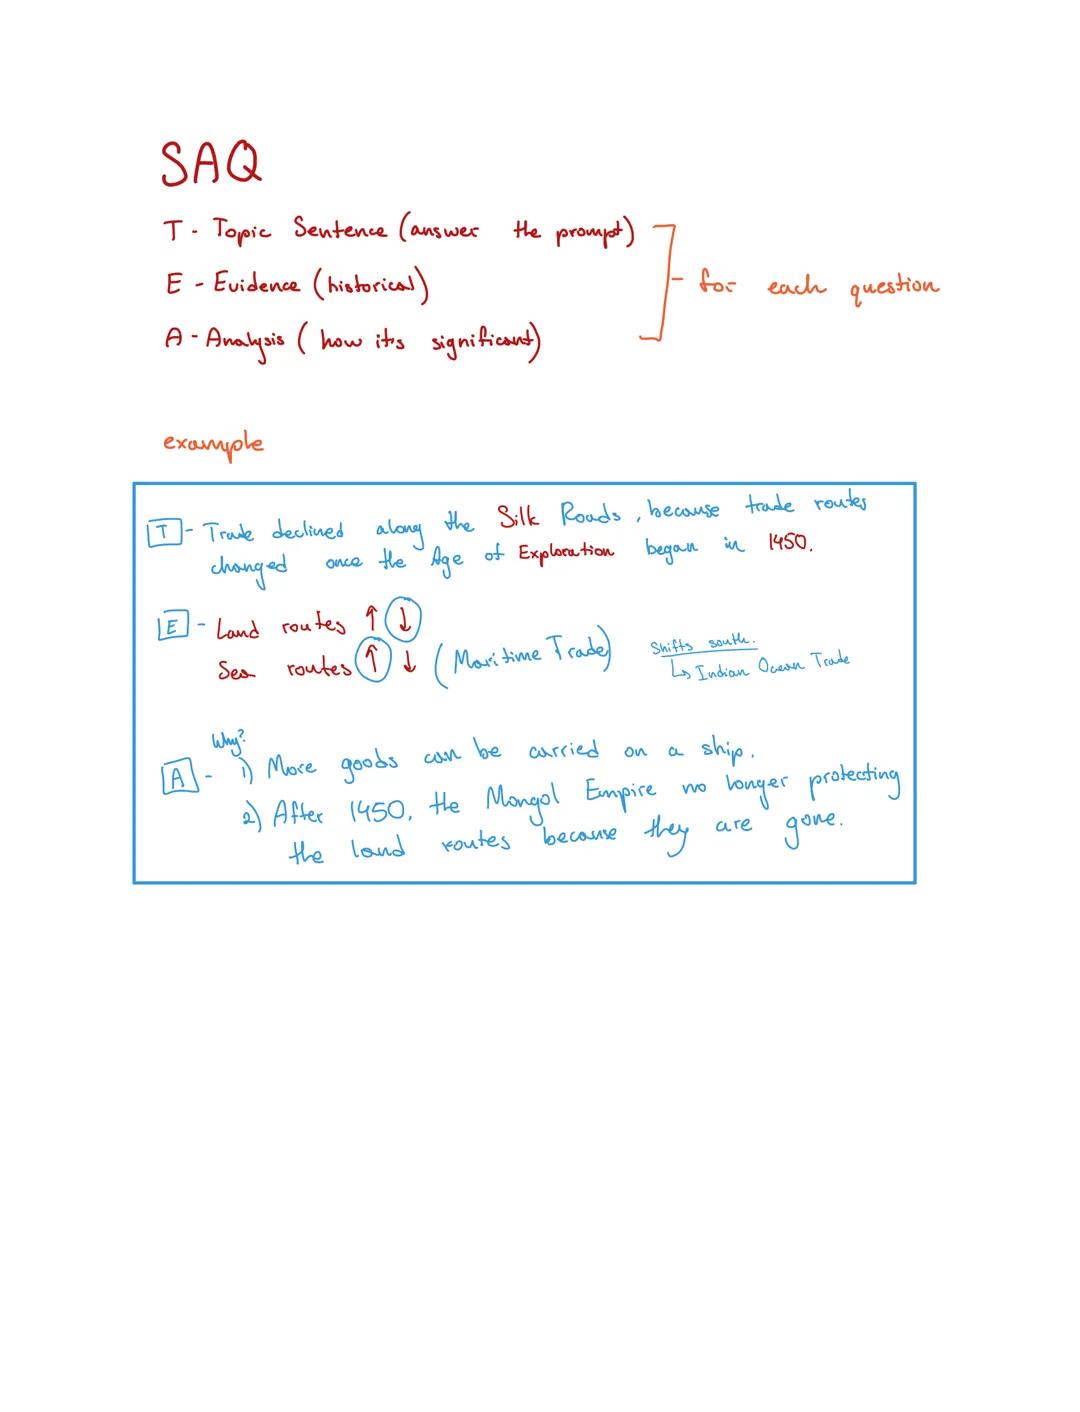 SAQ
T - Topic Sentence (answer the prompt)
E - Evidence (historical)
- for each question
A - Analysis ( how its significant)
example
T - Trade declined along the Silk Roads, because trade routes
changed once the Age of Exploration began in 1450.
E - Land routes ↑ ↓
Sea routes ↑ ↓ (Maritime Trade)
Shifts south.
↳ Indian Ocean Trade
Why?
A - 1) More goods can be carried on a ship.
2) After 1450, the Mongol Empire no longer protecting
the land routes because they are gone.